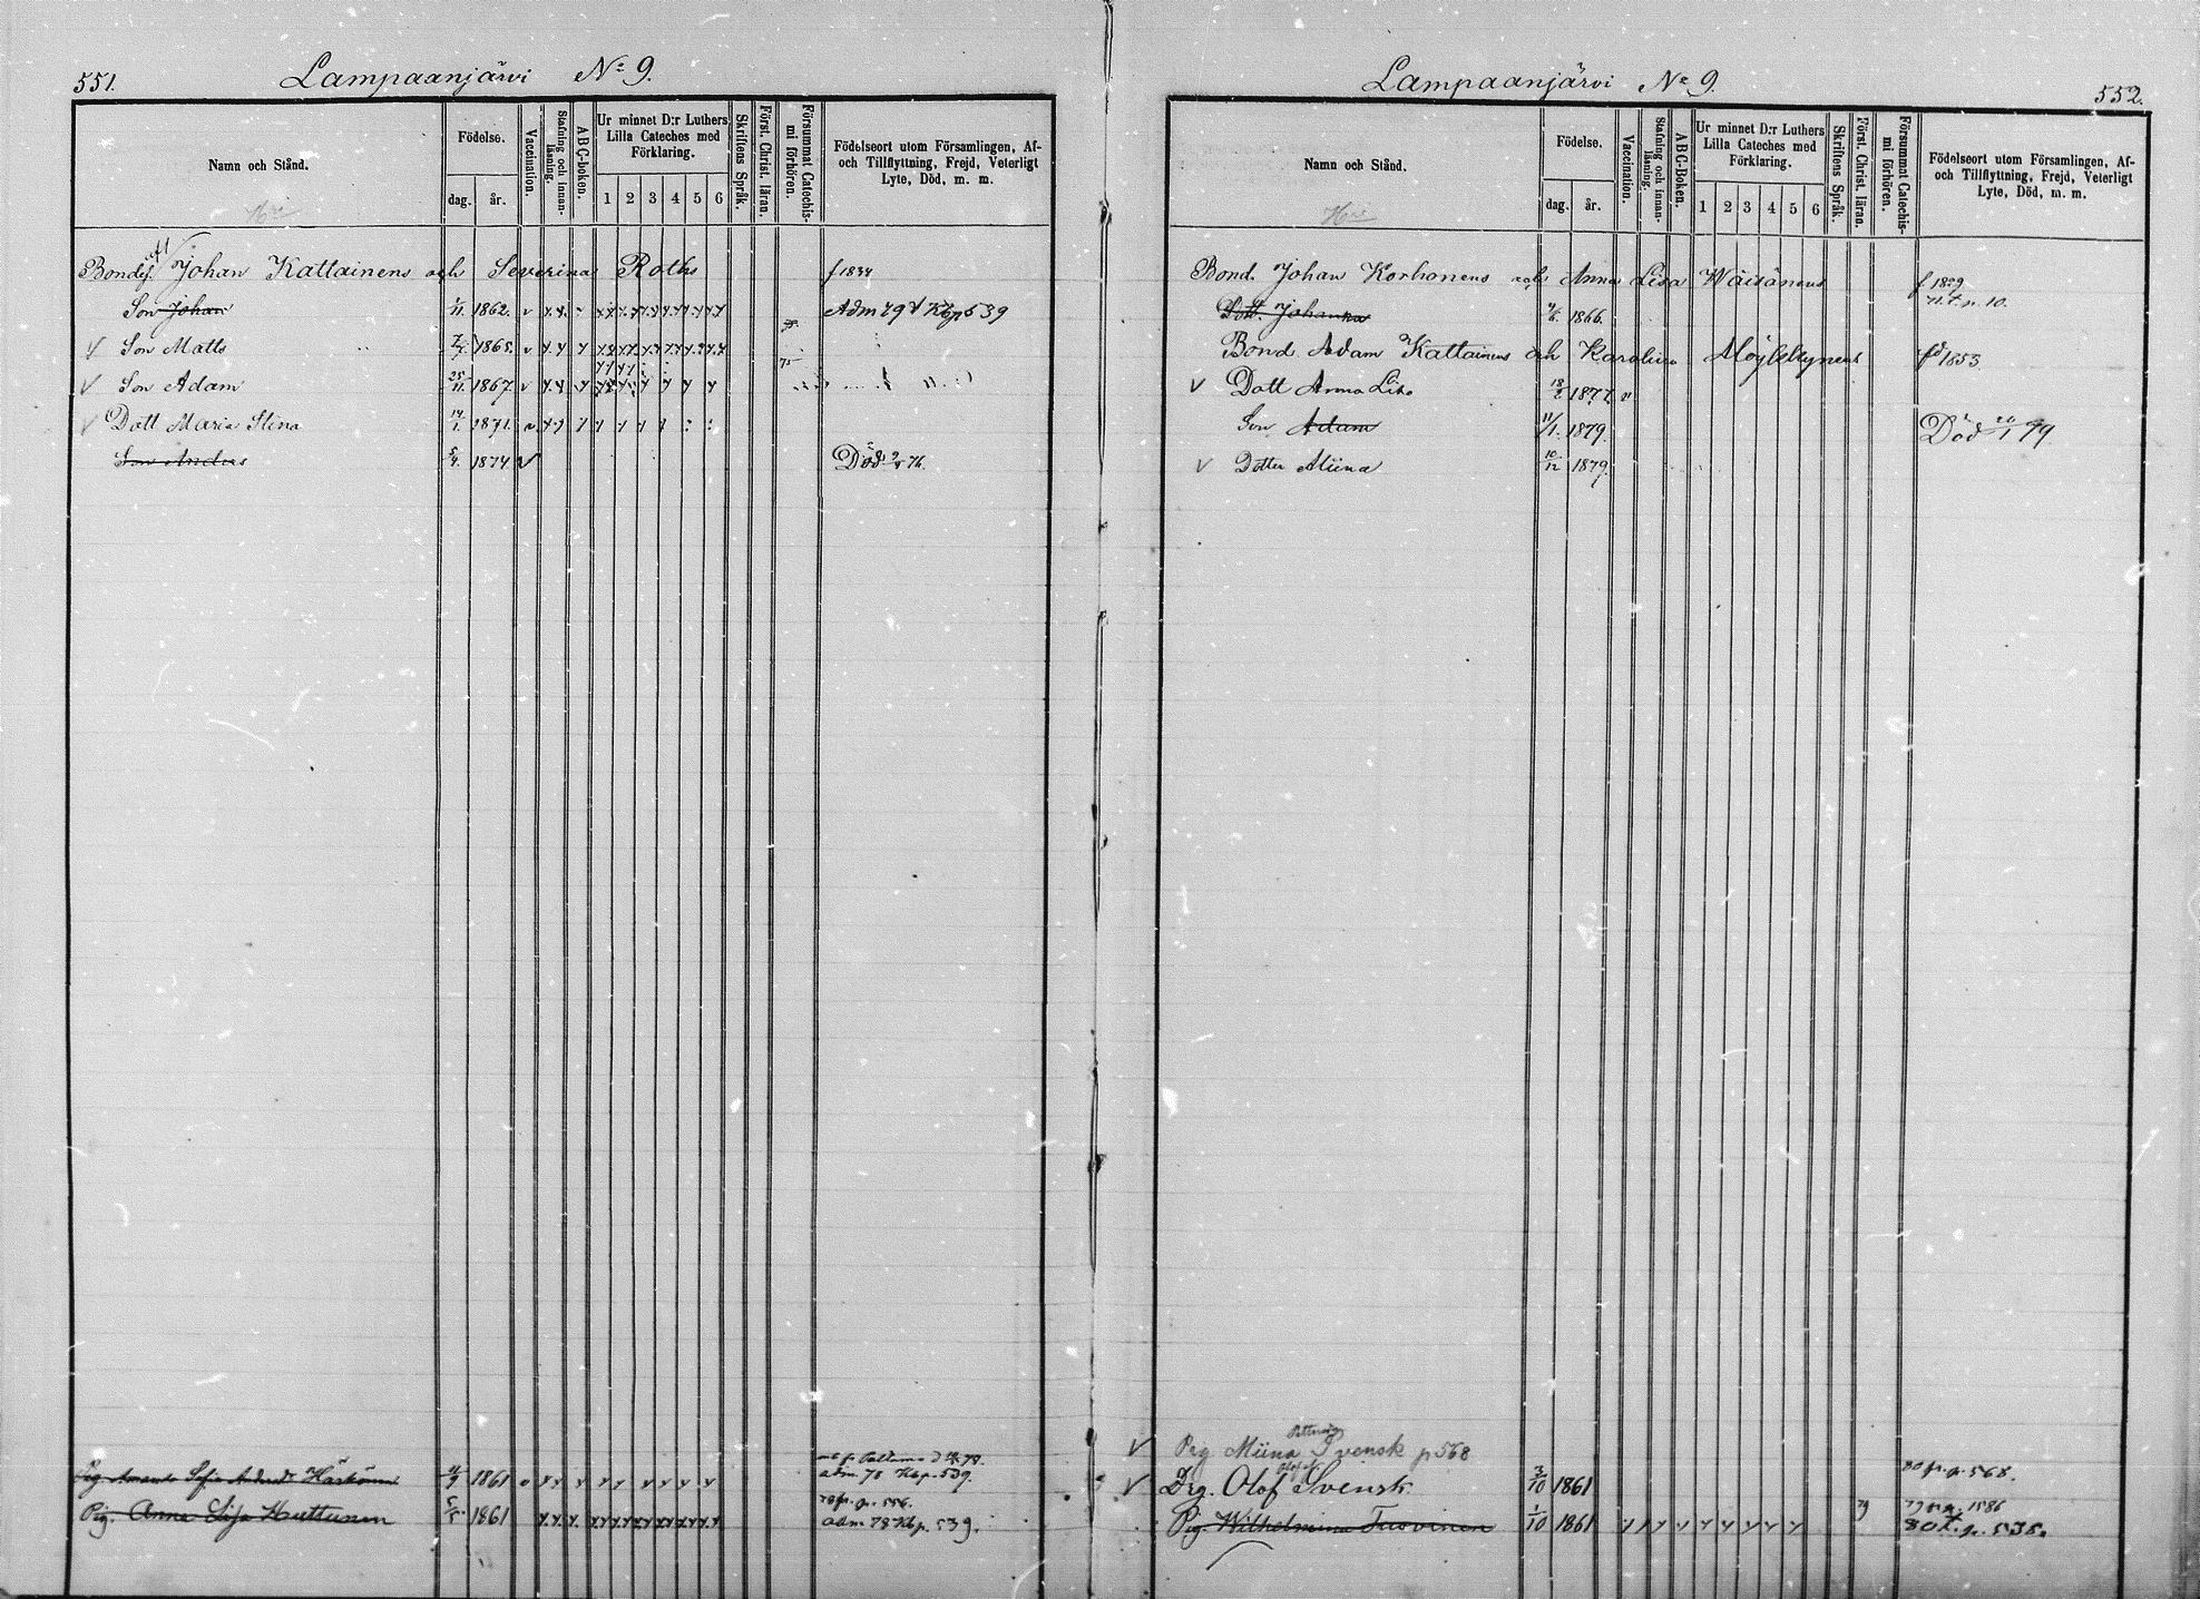 551.
Lampaanjärvi № 9.
Namn och Stånd.
Födelse.
dag.
år.
Vaccination.
Stafning och innan-läsning.
ABC-boken.
Ur minnet D:r Luthers
Lilla Cateches med
Förklaring.
1 2 3 4 5 6
Skriftens Språk.
Först. Christ. läran.
Försummat Catechis-mi förhören.
Födelseort utom Församlingen, Af-
och Tillflyttning, Frejd, Veterligt
Lyte, Död, m. m.
Johan Kattainens och Severinas Roths f 1834
Son Johan 1/11. 1862. v Adm 79 Kbp 539
v Son Matts 1865. v
75
v Son Adam 25/11. 1867. v
v Dott Maria Stina 14/1. 1871.
Son Anders 5/4. 1874 v Död 76.
1861 adm. 78 Kbp. 539.
Pig. Anna Lisa Huttunen 5/5 1861 adm 78 Kbp. 539.
Lampaanjärvi № 9.
552.
Namn och Stånd.
Födelse.
dag.
år.
Vaccination.
Stafning och innan-läsning.
ABC-Boken.
Ur minnet D:r Luthers
Lilla Cateches med
Förklaring.
1 2 3 4 5 6
Skriftens Språk.
Först. Christ. läran.
Försummat Catechis-mi förhören.
Födelseort utom Församlingen, Af-
och Tillflyttning, Frejd, Veterligt
Lyte, Död, m. m.
Bond. Johan Korhonens och Anna Lisa Wäisänens f 1829
Dott. Johanna 1866.
Bond Adam Kattainens och Karolina fd 1853
v Dott Anna Lisa 18/2 1877. v
Son Adam 11/1. 1879. Död 79
v Dotter Miina 10/12 1879.
v Pig Miina Svensk p 568
v Drg. Olof Svensk 3/10 1861 80 fr. p. 568.
Pig. Wilhelmina 1/10 1861 79